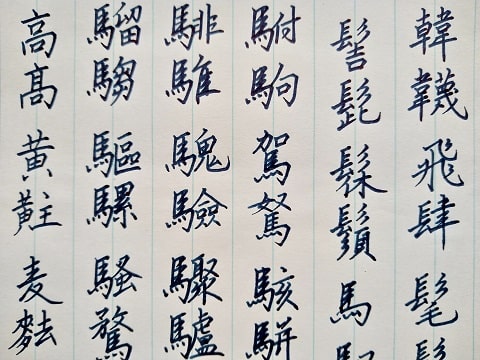 韓韈飛肆髦
髻髭髹鬚馬
駙駒駕駑駭駢
騑騅騩驗驟驢
騮騶驅騾騷騖
高髙黃黈麦麮